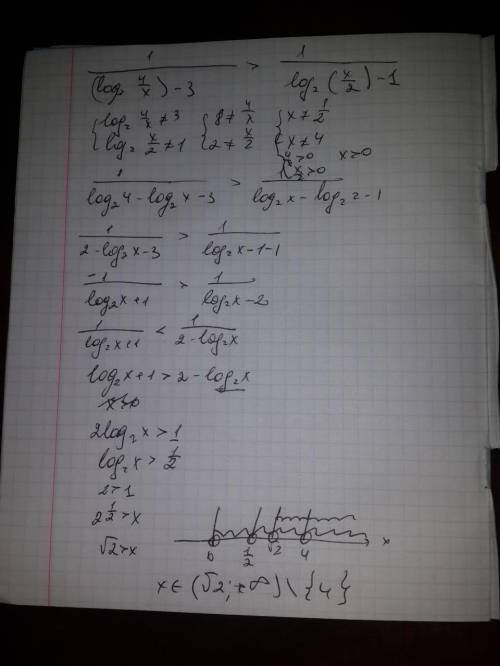 1/((log₂ 4/x) - 3) > 1/(log₂ (x/2) - 1)
{log₂ 4/x ≠ 3 {8 ≠ 4/x {x ≠ 1/2
log₂ x/2 ≠ 1 2 ≠ x/2 x ≠ 4
4/x > 0 x > 0
x/2 > 0
1/(log₂4 - log₂x - 3) > 1/(log₂x - log₂2 - 1)
1/(2 - log₂x - 3) > 1/(log₂x - 1 - 1)
-1/(log₂x + 1) > 1/(log₂x - 2)
1/(log₂x + 1) < 1/(2 - log₂x)
log₂x + 1 > 2 - log₂x
2log₂x > 1
log₂x > 1/2
2 > 1
2^(1/2) > x
√2 > x
0 1/2 √2 4 x
x ∈ (√2; +∞) \ {4}